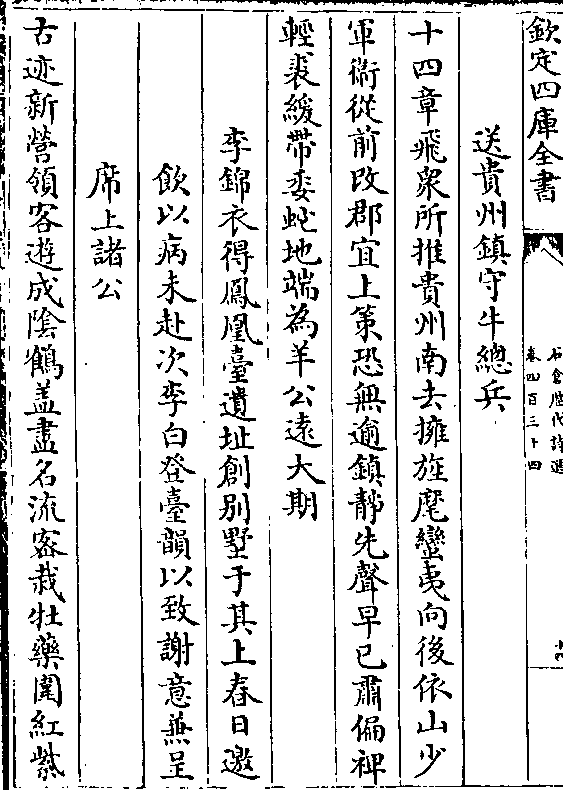 欽定四庫全書
石倉歴代詩選
卷四百三十四
送貴州鎮守牛總兵
十四章飛衆所推貴州南去擁旌麾蠻夷向後依山少
軍衛從前改郡宜上策恐無逾鎮靜先聲早已肅偏裨
輕裘緩帶委蛇地端為羊公遠大期
李錦衣得鳳凰臺遺址創别墅于其上春日邀
飲以病未赴次李白登臺韻以致謝意兼呈
席上諸公
古迹新營領客遊成陰鶴盖盡名流密栽牡藥圍紅紫